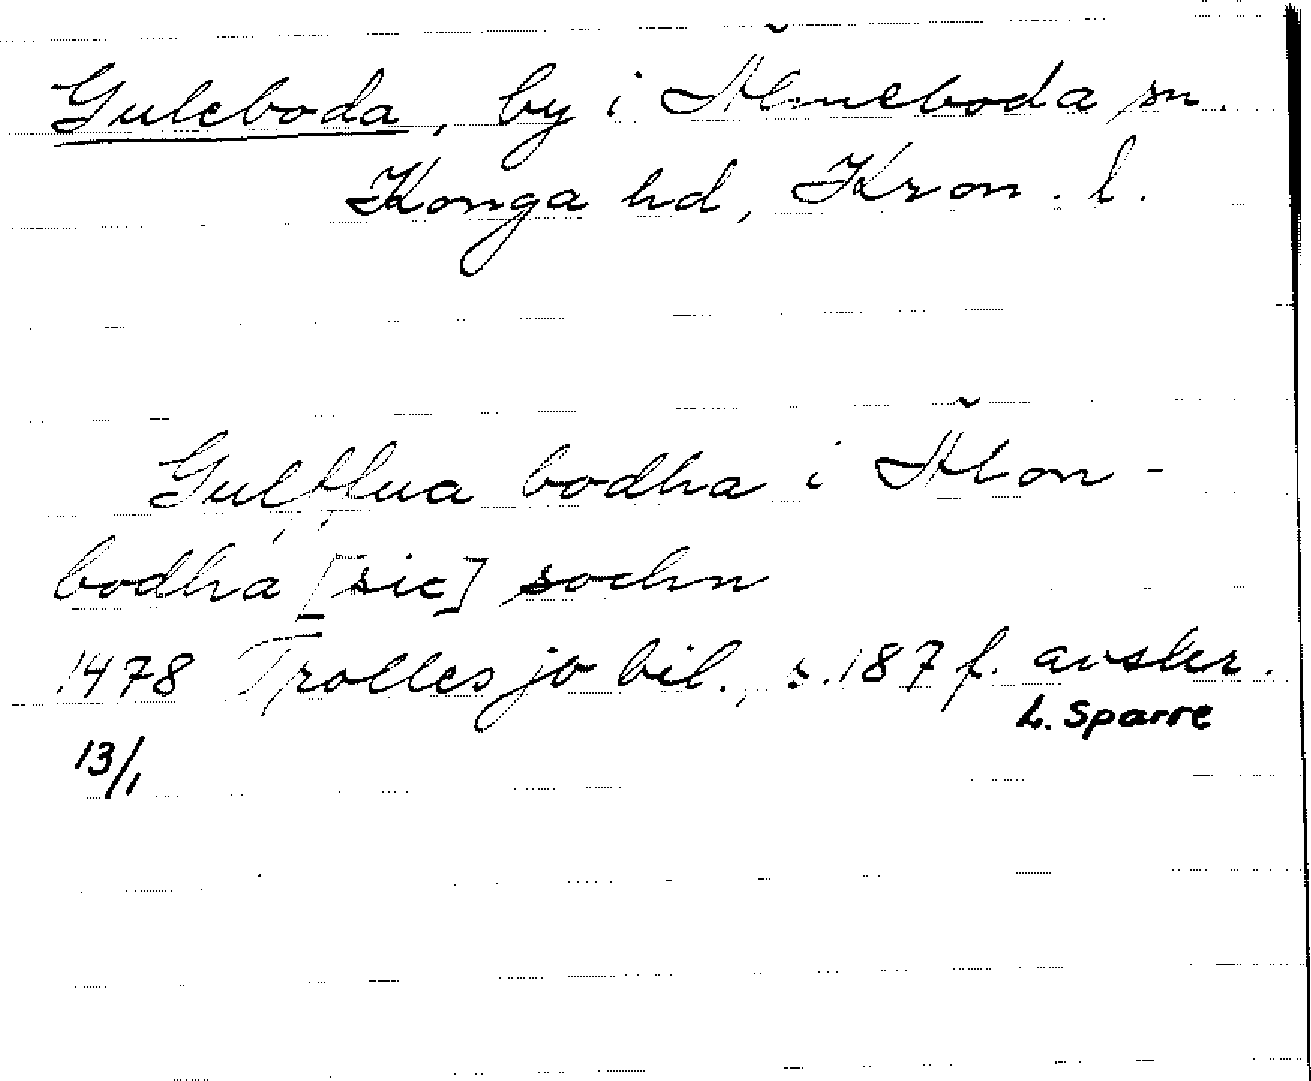 Guleboda, by i Älmeboda sn.
Konga hd, Kron. l.
Gulffua bodha i Älon-
bodha [sic] sochn
1478 Trolles jb bil., s. 187 f. avskr.
L. Sparre
13/1